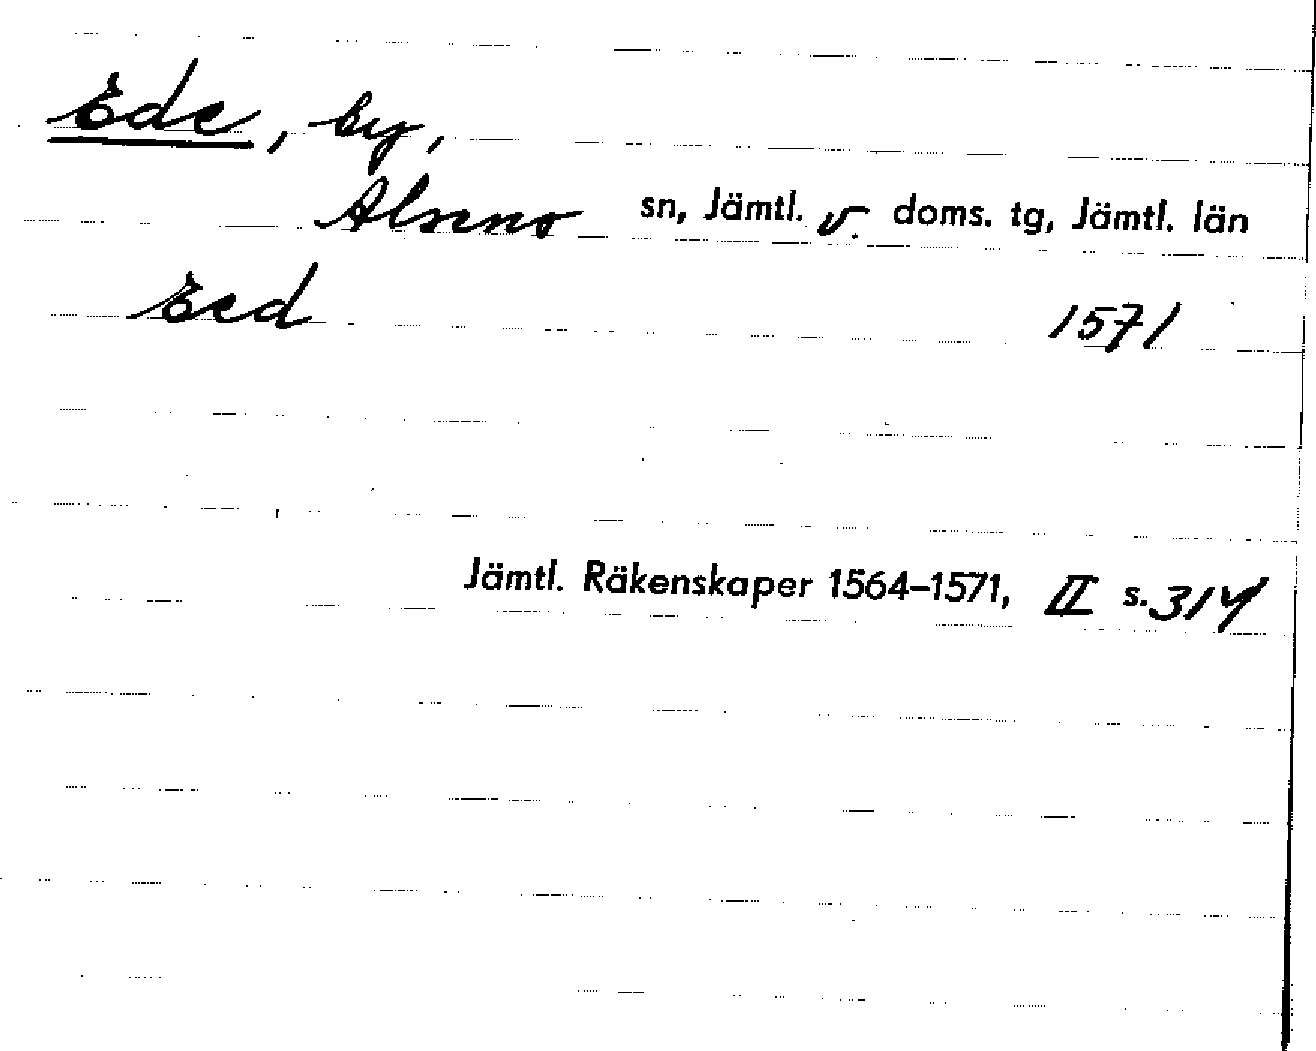 Ede, by,
Alsens sn, Jämtl. v. doms. tg, Jämtl. län
Eed 1571
Jämtl. Räkenskaper 1564–1571, II s. 314